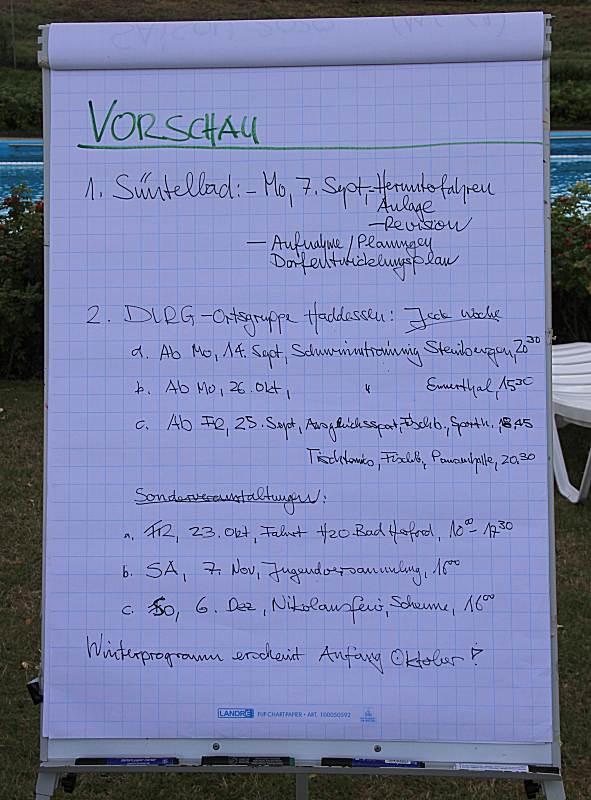 VORSCHAU
1. Süntelbad: – Mo, 7. Sept, – Herunterfahren
Anlage
– Revision
– Aufnahme / Planungen
Dorfentwicklungsplan
2. DLRG – Ortsgruppe Haddessen: Jede Woche
a. Ab Mo, 14. Sept, Schwimmtraining Steinbergen, 20³⁰
b. Ab Mo, 26. Okt, " Emmerthal, 15³⁰
c. Ab FR, 25. Sept, Ausgleichssport, Fischb., Sporth., 18.45
Tischtennis, Fischb., 20.30
Sonderveranstaltungen:
a. FR, 23. Okt, Fahrt H2O-Bad Herford, 10⁰⁰ – 17³⁰
b. SA, 7. Nov, Jugendversammlung, 16⁰⁰
c. SO, 6. Dez, Nikolausfeier, Scheune, 16⁰⁰
Winterprogramm erscheint Anfang Oktober!
LANDRÉ FLIPCHARTPAPIER • ART. 100050592